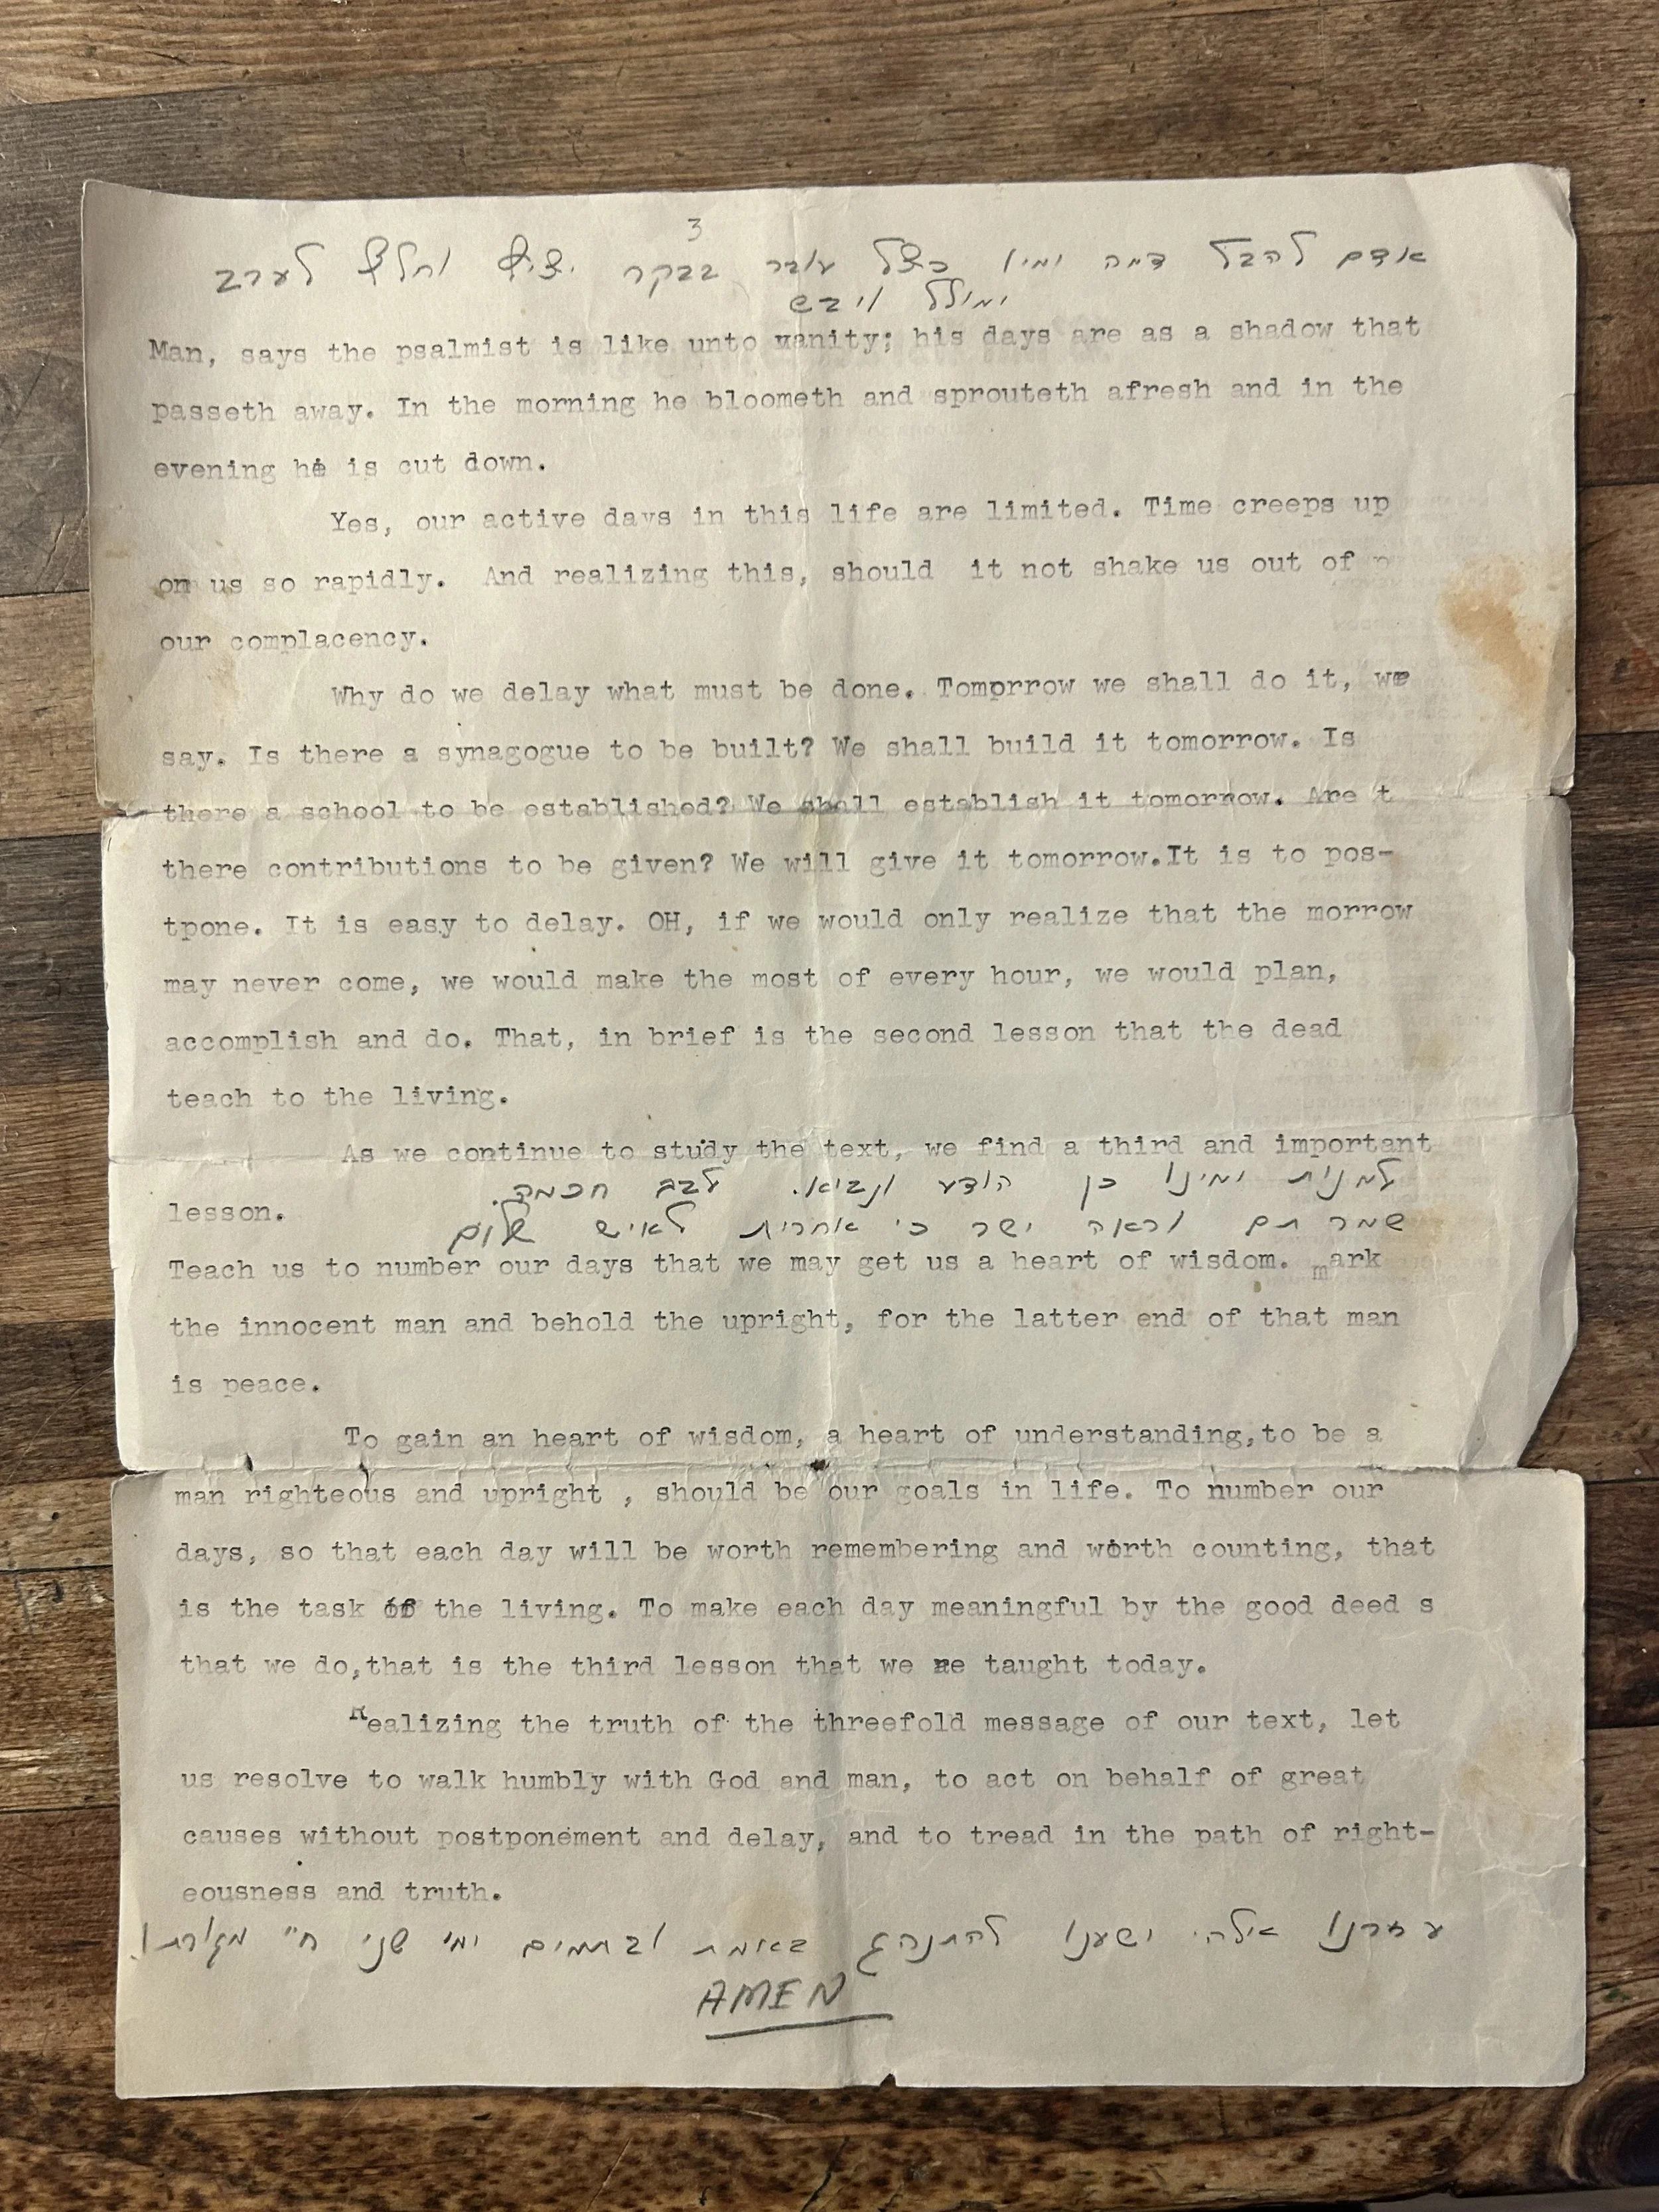 3
אדם להבל דמה ימיו כצל עובר בבקר יציץ וחלף לערב
ימולל ויבש
Man, says the psalmist is like unto vanity; his days are as a shadow that
passeth away. In the morning he bloometh and sprouteth afresh and in the
evening he is cut down.
Yes, our active days in this life are limited. Time creeps up
on us so rapidly. And realizing this, should it not shake us out of p
our complacency.
Why do we delay what must be done. Tomprrow we shall do it, we
say. Is there a synagogue to be built? We shall build it tomorrow. Is
there a school to be established? We shall establish it tomorrow. Are t
there contributions to be given? We will give it tomorrow.It is to pos-
tpone. It is easy to delay. OH, if we would only realize that the morrow
may never come, we would make the most of every hour, we would plan,
accomplish and do. That, in brief is the second lesson that the dead
teach to the living.
As we continue to study the text, we find a third and important
למנות ימינו כן הודע ונביא. לבב חכמה.
lesson.
שמר תם וראה ישר כי אחרית לאיש שלום
Teach us to number our days that we may get us a heart of wisdom. mark
the innocent man and behold the upright, for the latter end of that man
is peace.
To gain an heart of wisdom, a heart of understanding,to be a
man righteous and upright , should be our goals in life. To number our
days, so that each day will be worth remembering and worth counting, that
is the task of the living. To make each day meaningful by the good deed s
that we do,that is the third lesson that we re taught today.
Realizing the truth of the threefold message of our text, let
us resolve to walk humbly with God and man, to act on behalf of great
causes without postponement and delay, and to tread in the path of right-
eousness and truth.
עזרנו אלהי ישענו להתנהג באמת ובתמים ימי שני
AMEN